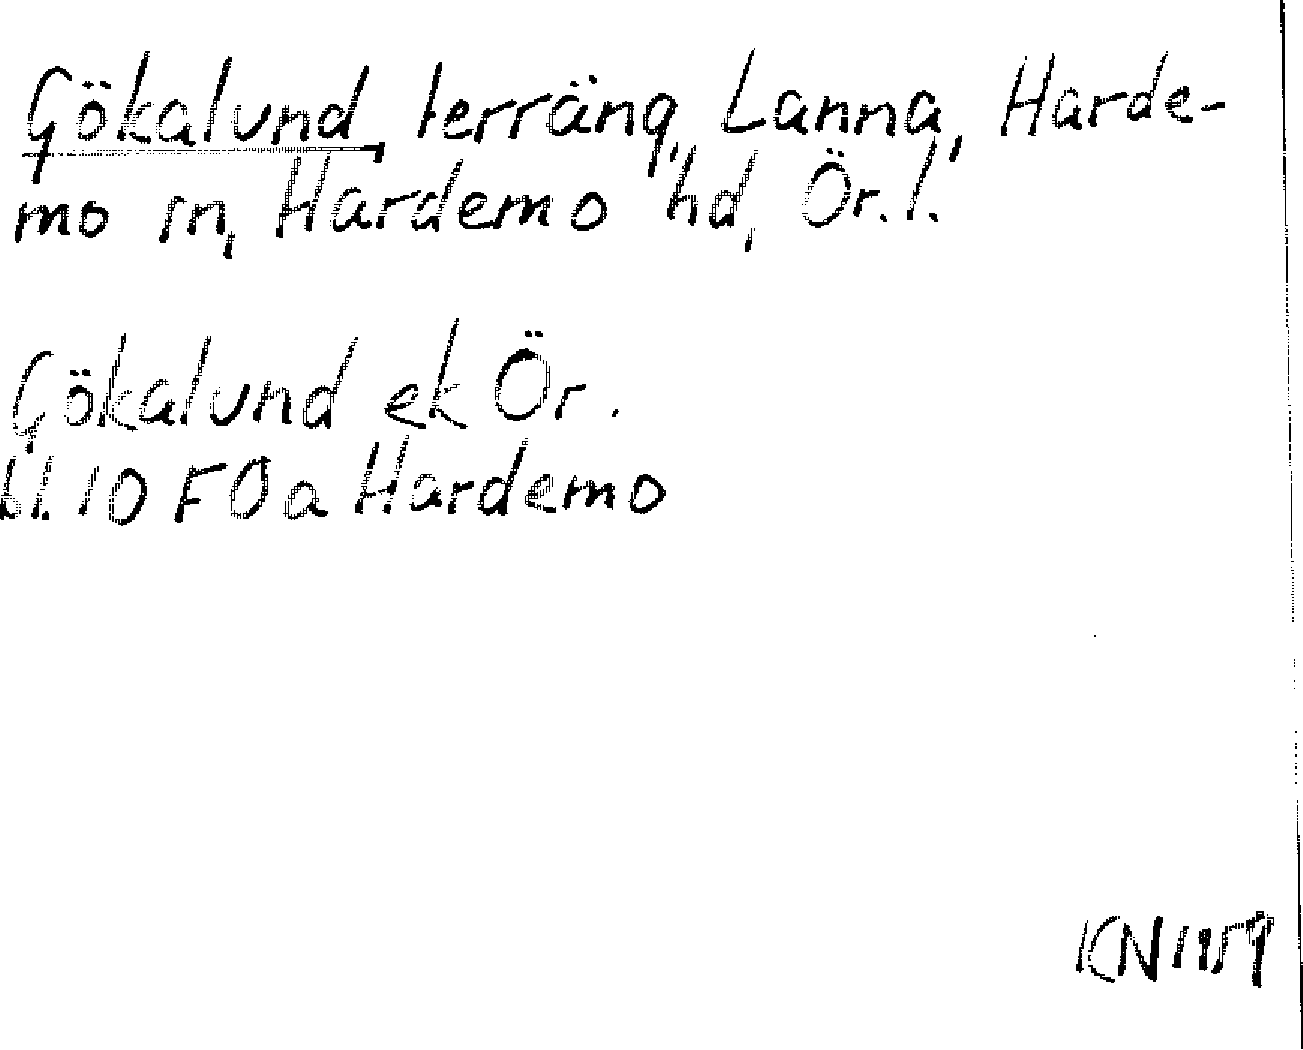 Gökalund, terräng, Lanna, Harde-
mo sn, Hardemo hd, Ör. l.
Gökalund ek Ör.
bl. 10 F0a Hardemo
KN 1959